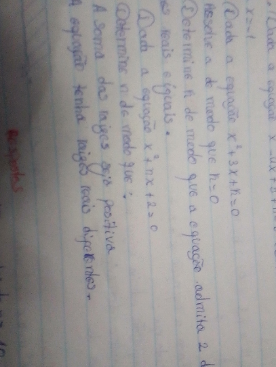 Dada a equação
x = -1
Dada a equação x² + 3x + n = 0
Resolve a de modo que n = 0
Determine n de modo que a equação admita 2
reais e iguais.
Dada a equação x² + nx + 2 = 0
Determine n de modo que:
A soma das raízes seja positiva
A equação tenha raízes reais diferentes.